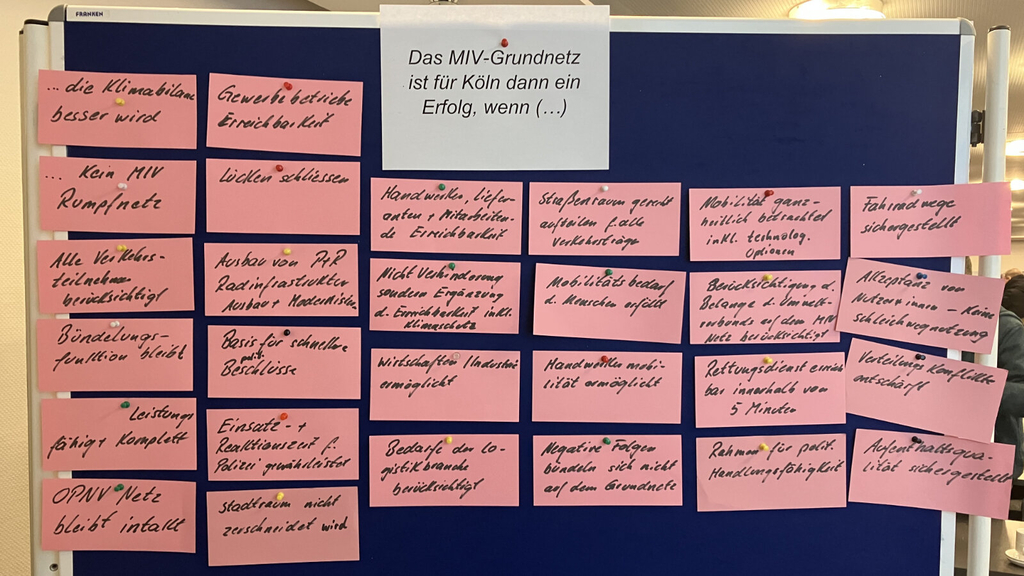 FRANKEN
Das MIV-Grundnetz
ist für Köln dann ein
Erfolg, wenn (…)
... die Klimabilanz
besser wird
... Kein MIV
Rumpfnetz
Alle Verkehrs-
teilnehmer
berücksichtigt
Bündelungs-
funktion bleibt
Leistungs
fähig + Komplett
ÖPNV Netz
bleibt intakt
Gewerbebetriebe
Erreichbarkeit
Lücken schliessen
Ausbau von P+R
Radinfrastruktur
Ausbau + Modernisieren
Basis für schnellere
polit.
Beschlüsse
Einsatz- +
Reaktionszeit f.
Polizei gewährleistet
Stadtraum nicht
zerschneidet wird
Handwerker, Liefer-
anten + Mitarbeiten-
de Erreichbarkeit
Nicht Verhinderung
sondern Ergänzung
d. Erreichbarkeit inkl.
Klimaschutz
Wirtschaften Industrie
ermöglicht
Bedarfe der Lo-
gistikbranche
berücksichtigt
Straßenraum gerecht
aufteilen f. alle
Verkehrsträge
Mobilitätsbedarf
d. Menschen erfüllt
Handwerker mobi-
lität ermöglicht
Negative Folgen
bündeln sich nicht
auf dem Grundnetz
Mobilität ganz-
heitlich betrachtet
inkl. technolog.
Optionen
Berücksichtigung d.
Belange d. Umwelt-
verbunds auf dem MIV
Netz berücksichtigt
Rettungsdienst erreich
bar innerhalb von
5 Minuten
Rahmen für polit.
Handlungsfähigkeit
Fahrradwege
sichergestellt
Akzeptanz von
Nutzer*innen – Keine
schleichwegnutzung
Verteilungskonflikte
entschärft
Aufenthaltsqua-
lität sichergestellt